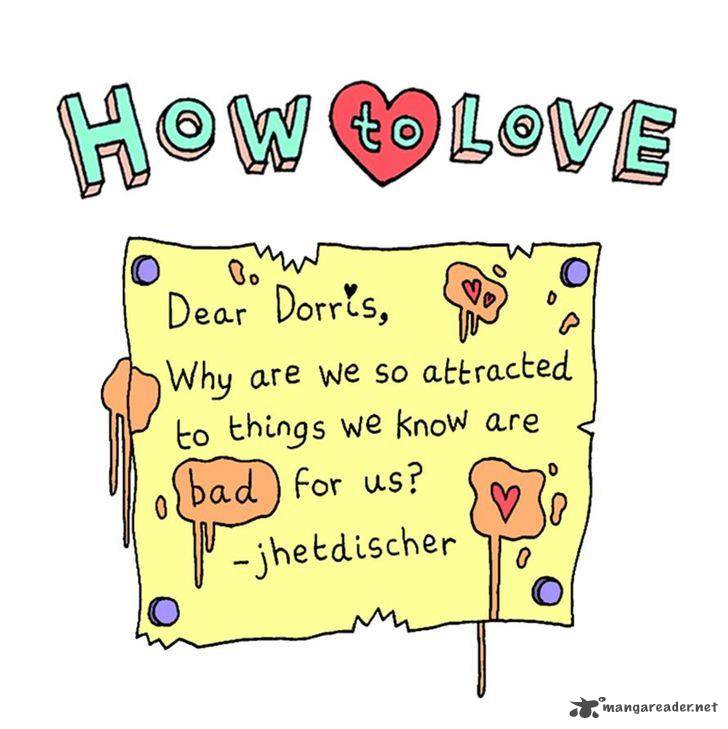 HOW to LOVE
Dear Dorris,
Why are we so attracted
to things we know are
bad for us?
-jhetdischer
mangareader.net